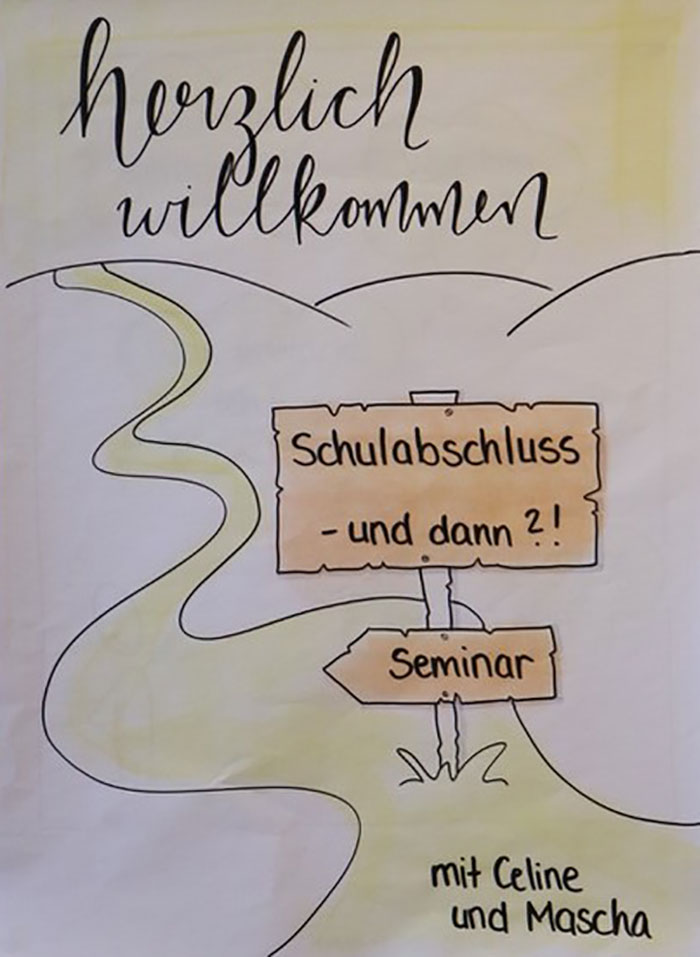 herzlich
willkommen
Schulabschluss
- und dann ?!
Seminar
mit Celine
und Mascha